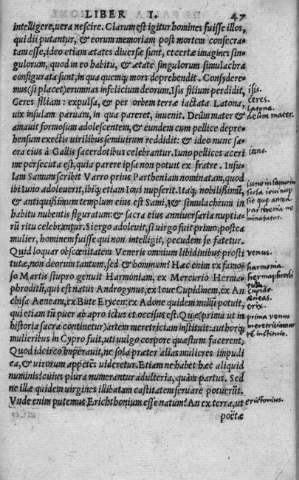 LIBER I. 47
intelligere, vera nescire. Clarum est igitur homines fuisse illos,
qui dii putantur, & eorum memoriam post mortem consecra-
tam esse, ideo etiam ætates diversæ sunt, et certæ imagines sin-
gulorum, quod in eo habitu, & ætate singulorum simulachra
configurata sunt, in qua quemq; mors deprehendit. Consydere-
mus (si placet) erumnas infelicium deorum, Isis filium perdidit,
Ceres filiam: expulsa, & per orbem terræ iactata Latona,
uix insulam paruam, in qua pareret, inuenit. Deûm mater &
amauit formosum adolescentem, & eundem cum pellice depre-
hensum exectis uirilibus semiuirum reddidit: & ideo nunc sa-
cra eius à Gallis sacerdotibus celebrantur. Iuno pellices acerri-
me persecuta est, quia parere ipsa non potuit ex fratre. Insu-
lam Samum scribit Varro prius Partheniam nominatam, quod
ibi Iuno adoleuerit, ibiq; etiam Ioui nupserit. Itaq; nobilissimū,
& antiquissimum templum eius est Sami, & simulachrum in
habitu nubentis figuratum: & sacra eius anniuersaria nuptia-
rū ritu celebrantur. Si ergo adoleuit, si uirgo fuit primò, postea
mulier, hominem fuisse qui non intelligit, pecudem se fatetur.
Quid loquar obscœnitatem Veneris omnium libidinibus prosti-
tutæ, non deorum tantum, sed & hominum? Hæc enim ex famo-
so Martis stupro genuit Harmoniam, ex Mercurio Hermae-
phroditū, qui est natus Androgynus, ex Ioue Cupidinem, ex An-
chisa Aeneam, ex Bute Erycen: ex Adone quidem nullū potuit,
qui etiam tū puer ab apro ictus et occisus est. Quæ prima ut in
historia sacra continetur) artem meretriciam instituit: authorq;
mulieribus in Cypro fuit, uti uulgo corpore quæstum facerent,
Quod idcirco imperauit, ne sola præter alias mulieres impudi-
ca, & uirorum appetēs uideretur. Etiam ne habet hæc aliquid
numinis: cuius plura numerantur adulteria, quàm partus. Sed
ne illæ quidem uirgines illibatam castitatem seruare potuerūt.
Vnde enim putemus Erichthonium esse natum? An ex terra, ut
poëtæ
isis.
ceres.
Latona
deum mater.
iuno
uenus.
harmonia.
cupido
æneas.
prima venus
meretricium
erictonius.